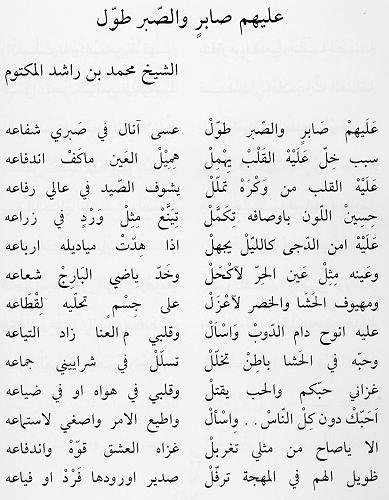 عليهم صابرٍ والصّبر طوّل
الشيخ محمد بن راشد المكتوم
عَلَيهمْ صَابرٍ والصّبر طوّلْ عسى آنال في صَبْري شفاعه
سبب خِلّ عَلَيْه القَلْبْ يِهْمِلْ هِمِيْلْ العَين ماكَفْ اندفاعه
عَلَيْه القلب من وَكْرَهْ تملّلْ يشوف الصّيد في عالي رفاعه
حسِينْ اللّون باوصافه تِكَمَّلْ تِيَنَّعْ مِثِلْ وَرْدٍ في زراعه
عَلَيْه امن الدّجى كالليّلْ يجهلْ اذا هِدّتْ مياديله ارباعه
وعَينه مِثِلْ عَين الحِرّ لآكْحَلْ وخَدّ ياضي البَارِجْ شعاعه
ومهيوف الحَشَا والخصر لآعْزَلْ على جِسْمٍ تحلّيه لِقْطَاعه
عليه انوح دام الدّوبْ وَاسْألْ وقلبي م العنا زاد التياعه
وحبّه في الحَشا باطِنْ تخلّلْ تسلّلْ في شراييني جماعه
غزاني حبّكم والحب يقتلْ وقلبي في هواه او في ضياعه
اَحَبَّكْ دون كِلْ النّاسْ.. واسْألْ واطيع الامر واصغي لاستماعه
الا ياصاح من مثلي تغربلْ غزاه العشق قوّهْ واندفاعه
طويل الهم في المهجة ترفّلْ صدير اورودها فَرْدْ او فياعه